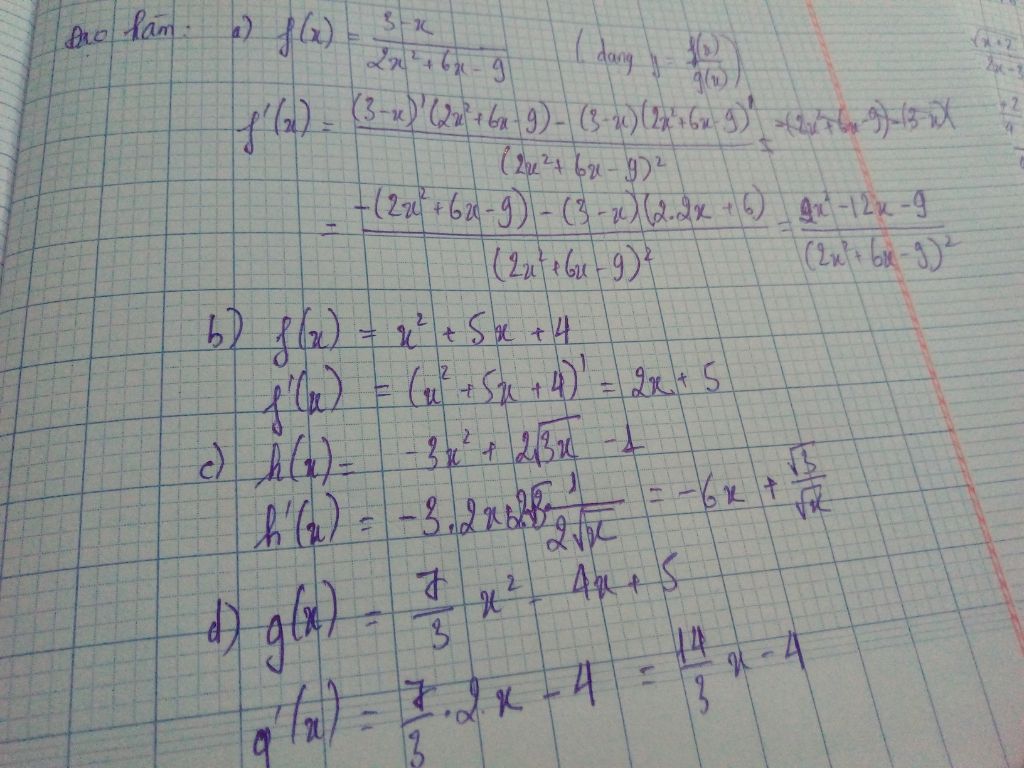 Đạo hàm: a) f(x) = (3-x)/(2x²+6x-9) (dạng y = f(x)/g(x))
f'(x) = ((3-x)'(2x²+6x-9) - (3-x)(2x²+6x-9)')/(2x²+6x-9)² =
= (-(2x²+6x-9) - (3-x)(2.2x+6))/(2x²+6x-9)² = (2x²-12x-9)/(2x²+6x-9)²
b) f(x) = x² + 5x + 4
f'(x) = (x² + 5x + 4)' = 2x + 5
c) h(x) = -3x² + 2√3x - 1
h'(x) = -3.2x + 2√3 · 1/(2√x) = -6x + √3/√x
d) g(x) = 7/3 x² - 4x + 5
g'(x) = 7/3 . 2.x - 4 = 14/3 x - 4